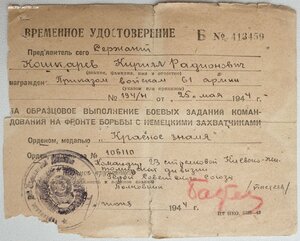 ВРЕМЕННОЕ УДОСТОВЕРЕНИЕ Б № 413459
Пред'явитель сего Сержант
Кошкарев Кирилл Радионович
(звание, фамилия, имя и отчество)
награжден Приказом войскам 61 армии
(указом или приказом)
№ 134/н от 25 мая 1944 г.
ЗА ОБРАЗЦОВОЕ ВЫПОЛНЕНИЕ БОЕВЫХ ЗАДАНИЙ КОМАН-
ДОВАНИЯ НА ФРОНТЕ БОРЬБЫ С НЕМЕЦКИМИ ЗАХВАТЧИКАМИ
Орденом, медалью "Красное знамя"
Орден №
Командир 23 стрелковой Киевско-Жи-
томирской дивизии
Герой Советского Союза
Полковник
июня 1944 г.